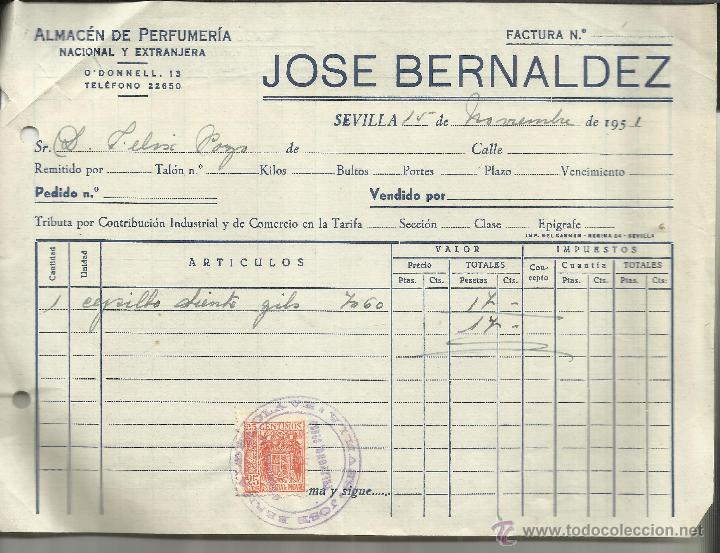 ALMACÉN DE PERFUMERÍA
NACIONAL Y EXTRANJERA
O'DONNELL, 13
TELÉFONO 22650
FACTURA N.º
JOSE BERNALDEZ
SEVILLA 15 de Noviembre de 1951
Sr. D. Felix Pozo de Calle
Remitido por Talón n.º Kilos Bultos Portes Plazo Vencimiento
Pedido n.º Vendido por
Tributa por Contribución Industrial y de Comercio en la Tarifa Sección Clase Epigrafe
IMP. DEL CARMEN - REGINA 24 - SEVILLA
Cantidad Unidad ARTICULOS VALOR IMPUESTOS
Precio TOTALES Concepto Cuantía TOTALES
Ptas. Cts. Pesetas Cts. Ptas. Cts. Ptas. Cts.
1 cepillo diente gils 7060 17 -
17 -
25 CENTIMOS
25
ESPECIAL MOVIL
ma y sigue....
www.todocoleccion.net